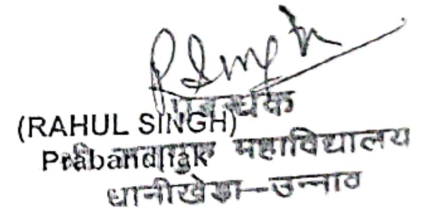 प्रबन्धक
(RAHUL SINGH)
Prabandhak महाविद्यालय
धानीखेड़ा–उन्नाव